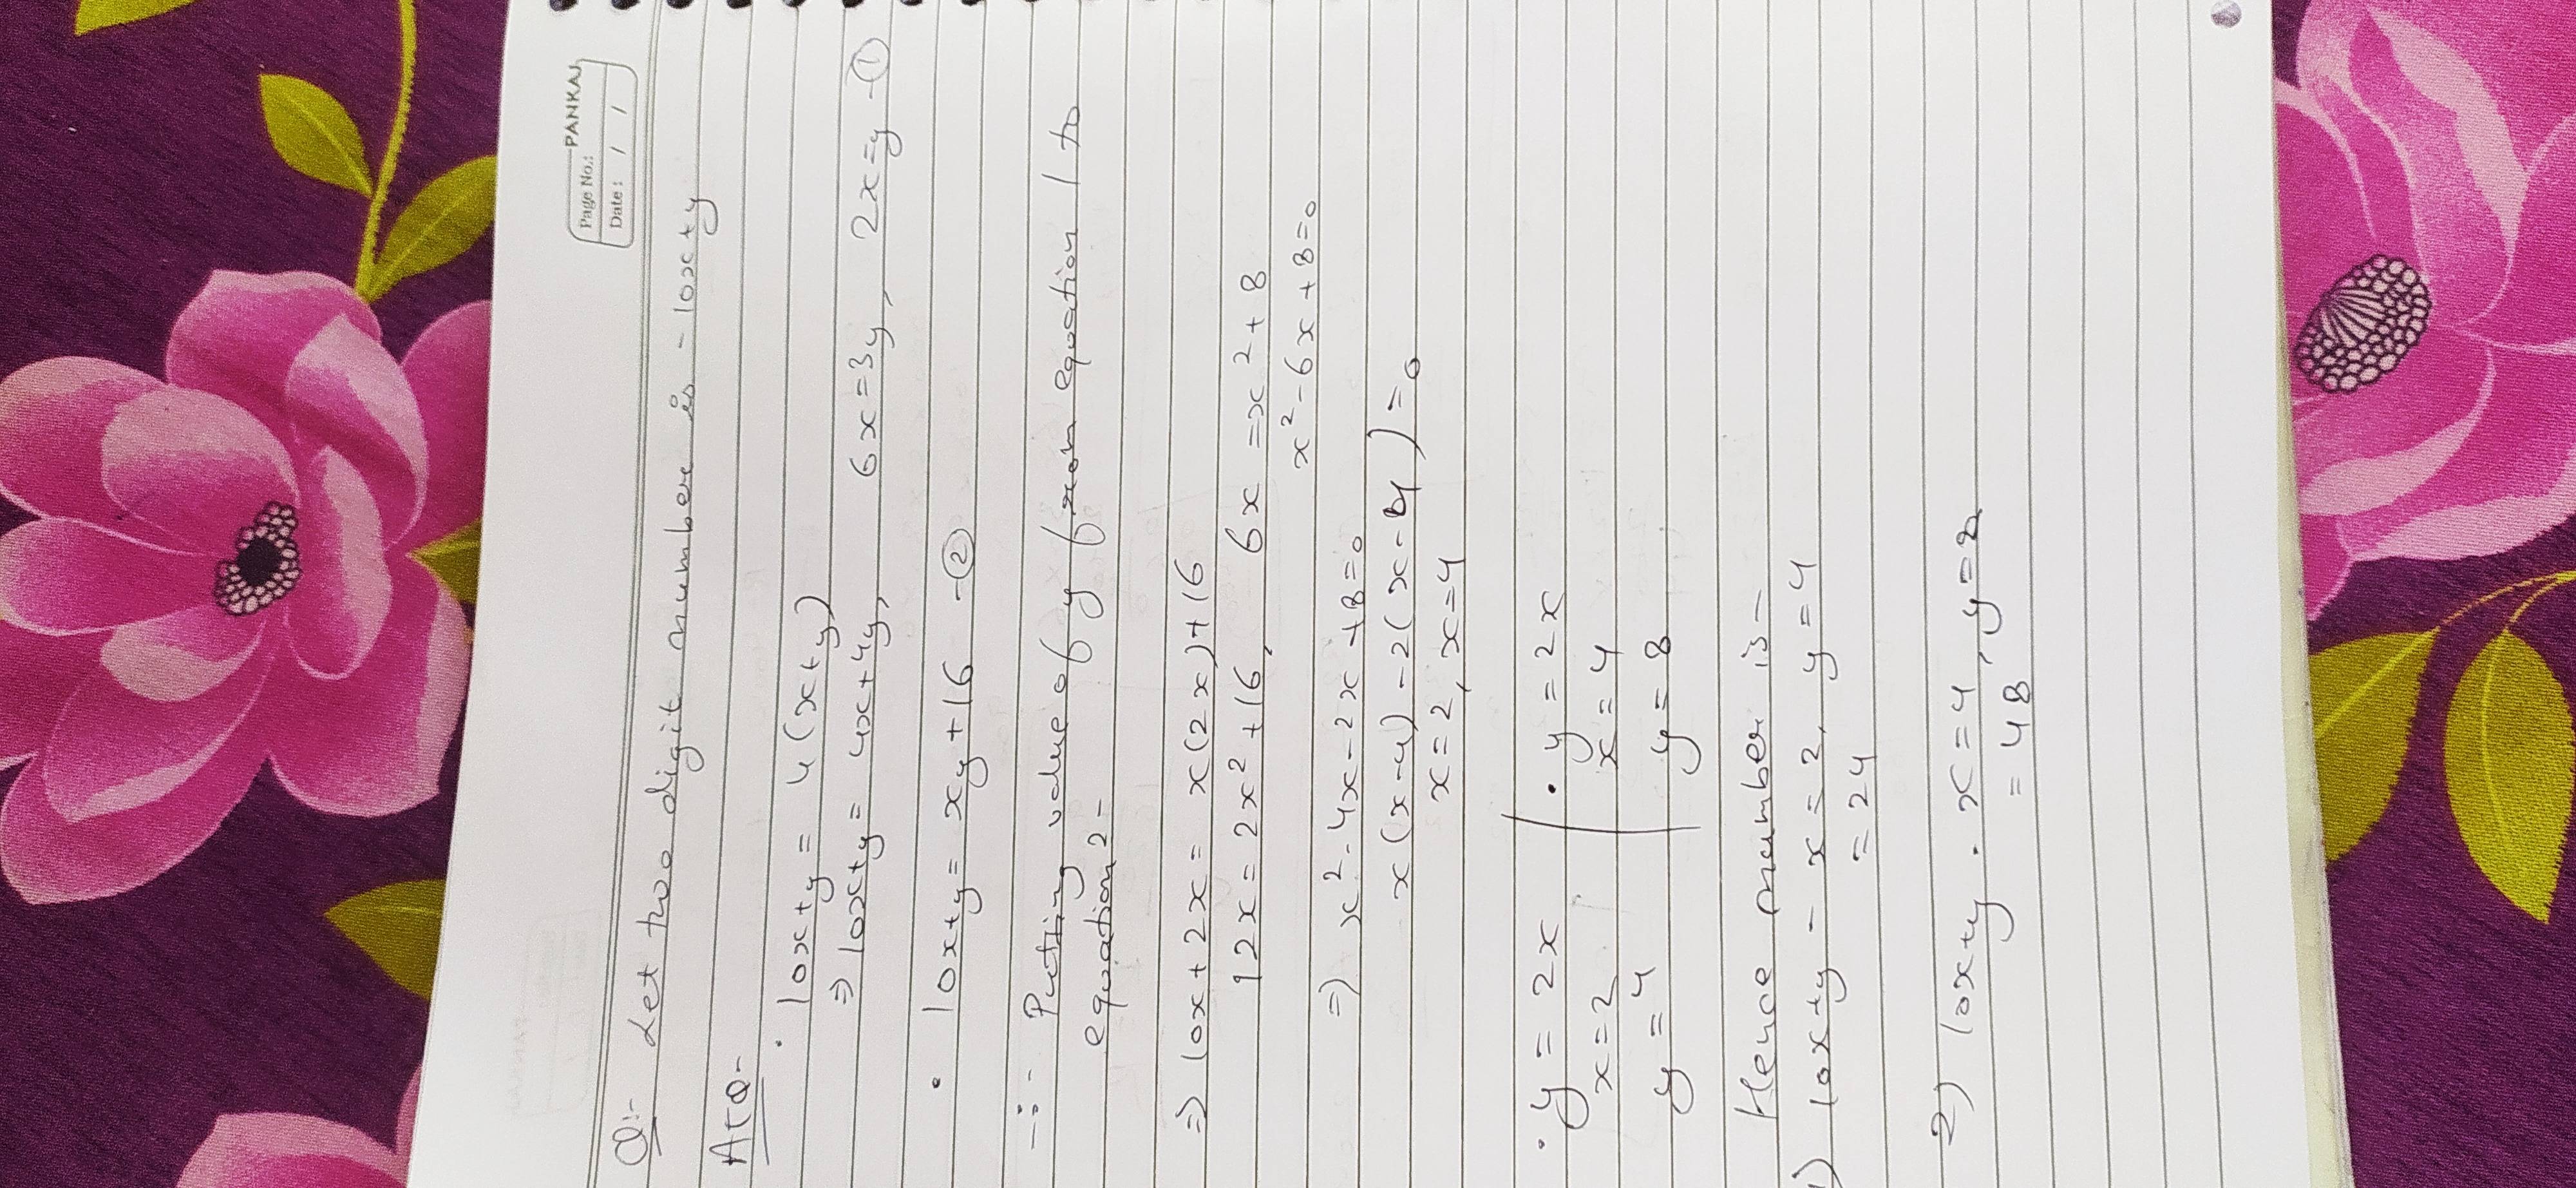 PANKAJ
Page No.:
Date: / /
Q:- Let two digit number is - 10x+y
ATQ-
· 10x+y = 4(x+y)
⇒ 10x+y = 4x+4y, 6x=3y, 2x=y -①
· 10x+y = xy+16 -②
-:- Putting value of y from equation 1 to
equation 2-
⇒ 10x+2x = x(2x)+16
12x = 2x²+16, 6x = x²+8
x²-6x+8=0
⇒ x²-4x-2x+8=0
x(x-4)-2(x-4)=0
x=2, x=4
· y = 2x · y = 2x
x=2 x=4
y=4 y=8
Hence number is -
1) 10x+y - x=2, y=4
= 24
2) 10x+y · x=4, y=8
= 48